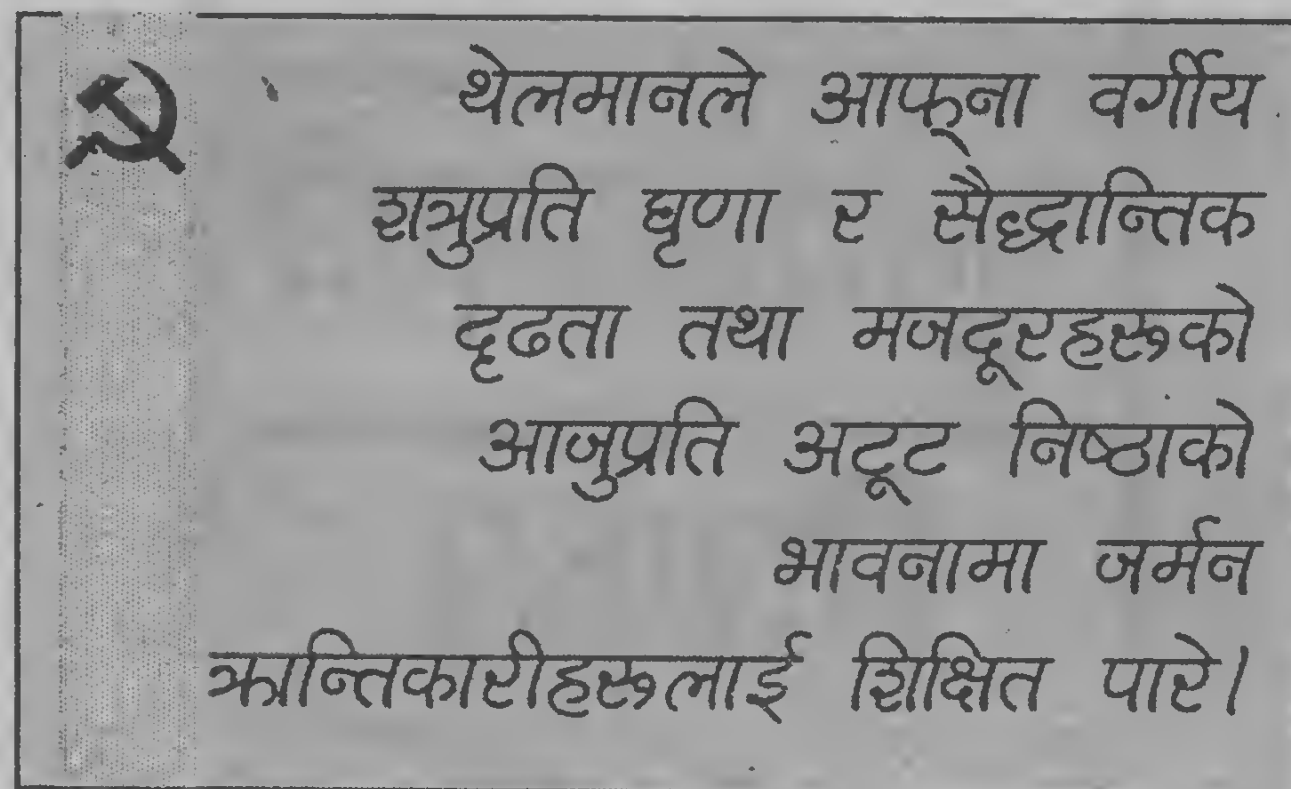 थेलमानले आफ्ना वर्गीय
शत्रुप्रति घृणा र सैद्धान्तिक
दृढता तथा मजदूरहरूको
आजुप्रति अटूट निष्ठाको
भावनामा जर्मन
क्रान्तिकारीहरूलाई शिक्षित पारे।